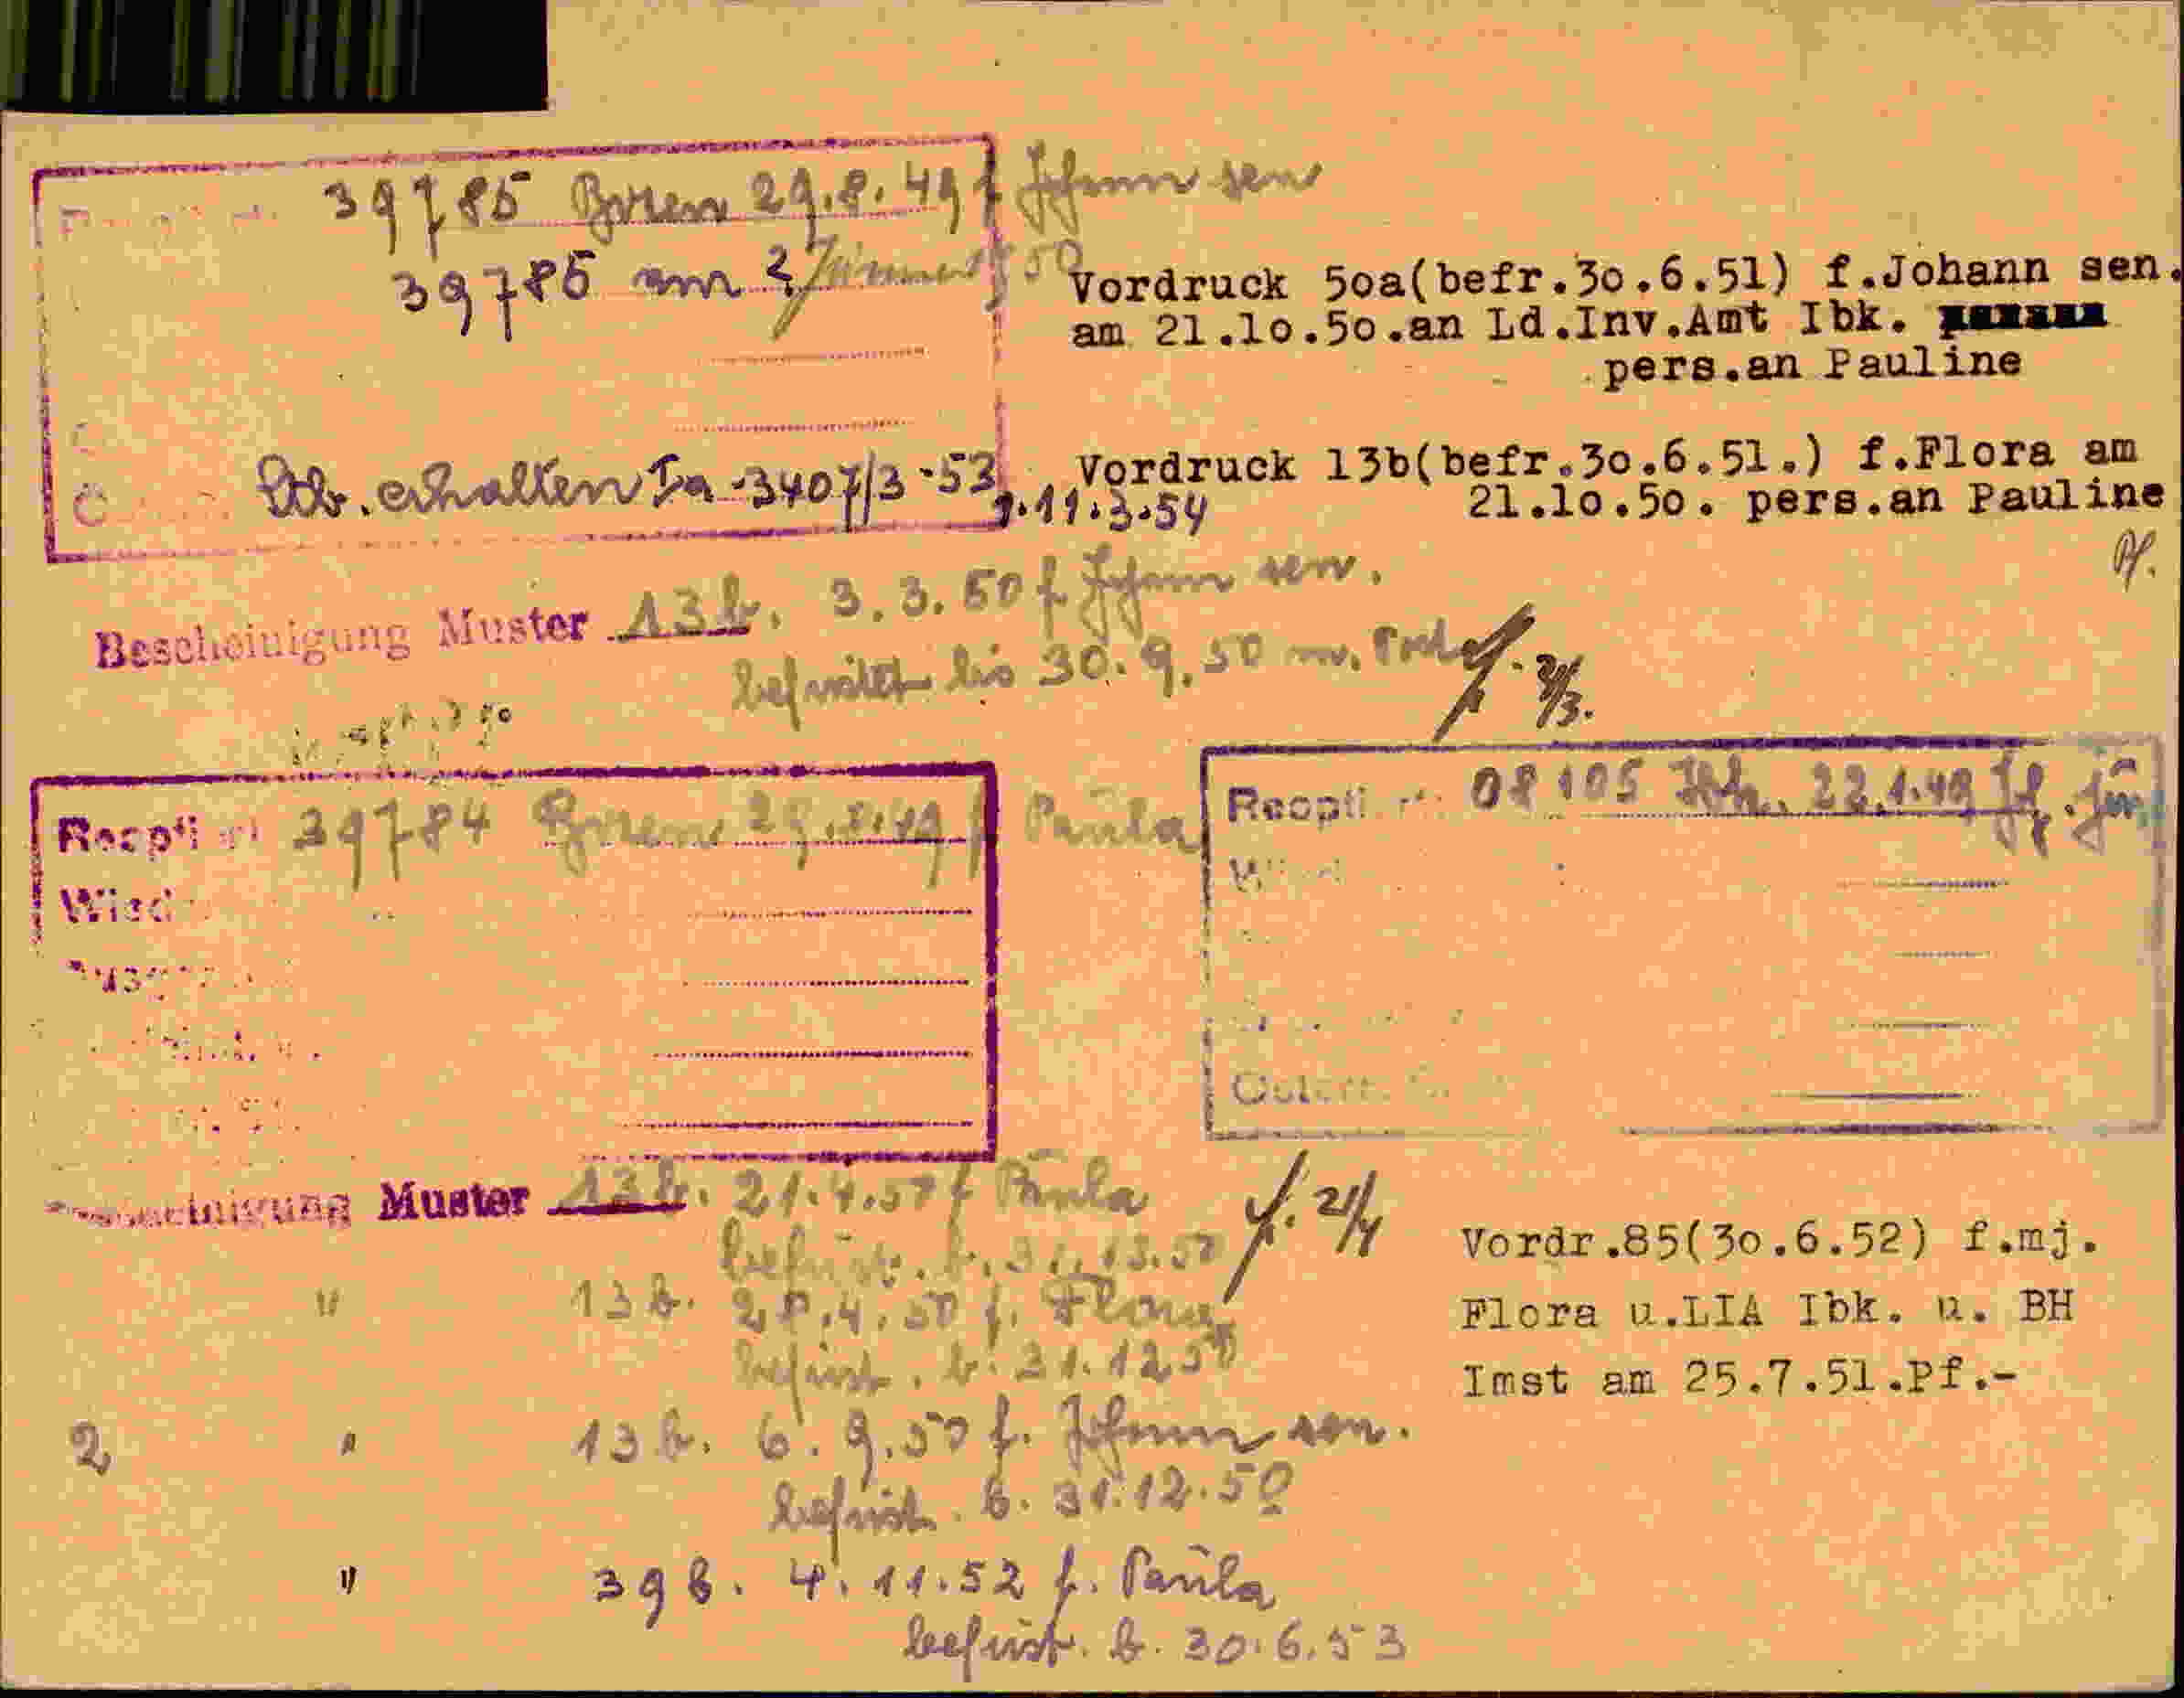 39785 Bozen 29.8.49 f Johann sen
39785 am 2 Jänner 50
Vordruck 5oa(befr.3o.6.51) f.Johann sen.
am 21.1o.5o.an Ld.Inv.Amt Ibk.
pers.an Pauline
erhalten Ia-3407/3-53
Vordruck 13b(befr.3o.6.51.) f.Flora am
v.11.3.54
21.1o.5o. pers.an Pauline
Pf.
Bescheinigung Muster 13b. 3.3.50 f Johann sen.
befristet bis 30.9.50 m.
3/3.
Reopti 39784 Bozen 29.8.49 f Paula
Reopti 08105 22.1.49 jun.
Wied
Muster 13b. 21.4.50 f Paula
21/4
befrist. b. 31.12.50
" 13b. 20.4.50 f. Flora
befrist. b. 31.12.50
Vordr.85(3o.6.52) f.mj.
Flora u.LIA Ibk. u. BH
Imst am 25.7.51.Pf.-
2 " 13b. 6.9.50 f. Johann sen.
befrist. b. 31.12.50
" 39b. 4.11.52 f. Paula
befrist. b. 30.6.53